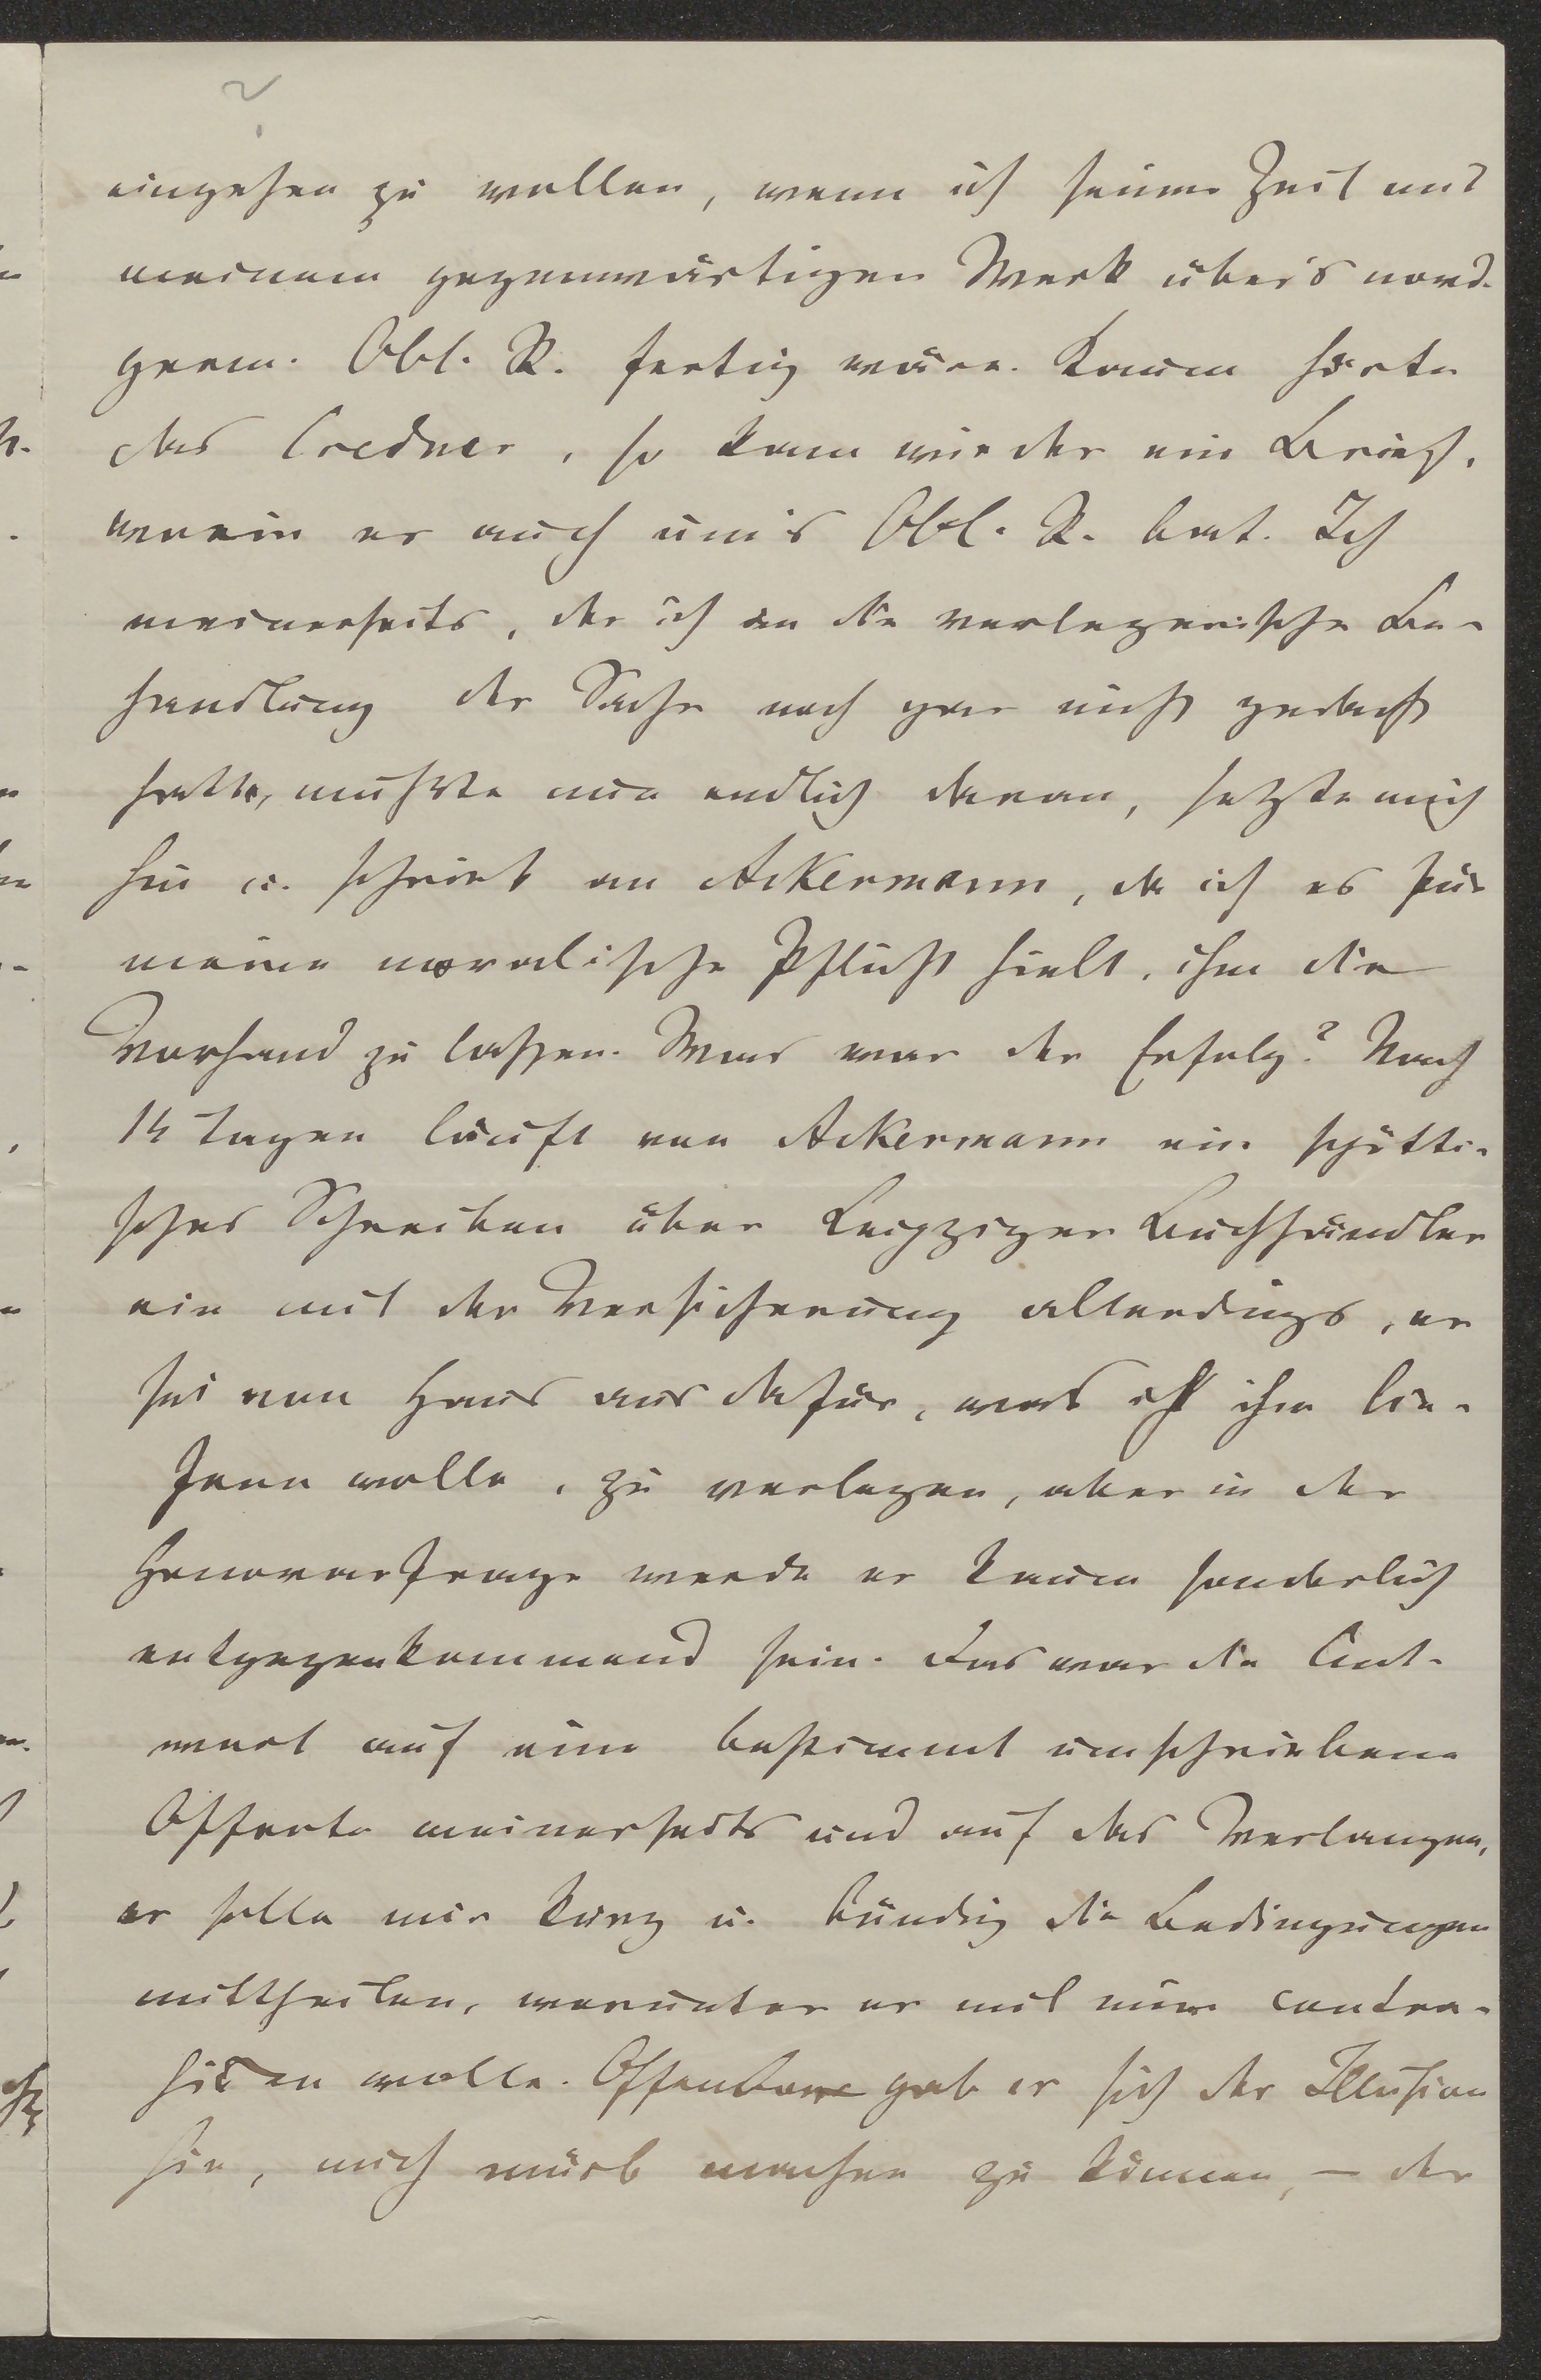 2
eingehen zu wollen, wenn ich seiner Zeit mit
meinem gegenwärtigen Werk über's nord-
germ. Obl. R. fertig wäre. Kaum hörte
das Credner, so kam wieder ein Brief,
worin er auch um's Obl. R. bat. Ich
meinerseits, der ich an die verlegerische Be-
handlung der Sache noch gar nicht gedacht
hatte, mußte nun endlich daran, setzte mich
hin u. schrieb an Ackermann, da ich es für
meine moralische Pflicht hielt, ihm die
Vorhand zu lassen. Was war der Erfolg? Nach
14 Tagen läuft von Ackermann ein spötti-
sches Schreiben über Leipziger Buchhändler
ein mit der Versicherung allerdings, er
sei von Haus aus dafür, was ich ihm lie-
fern wolle, zu verlegen, aber in der
Honorarfrage werde er kaum sonderlich
entgegenkommend sein. Das war die Ant-
wort auf eine bestimmt umschriebene
Offerte meinerseits und auf das Verlangen,
er solle mir kurz u. bündig die Bedingungen
mittheilen, worunter er mit mir contra-
hiren wolle. Offenbar gab er sich der Illusion
hin, mich mürb machen zu können, – der